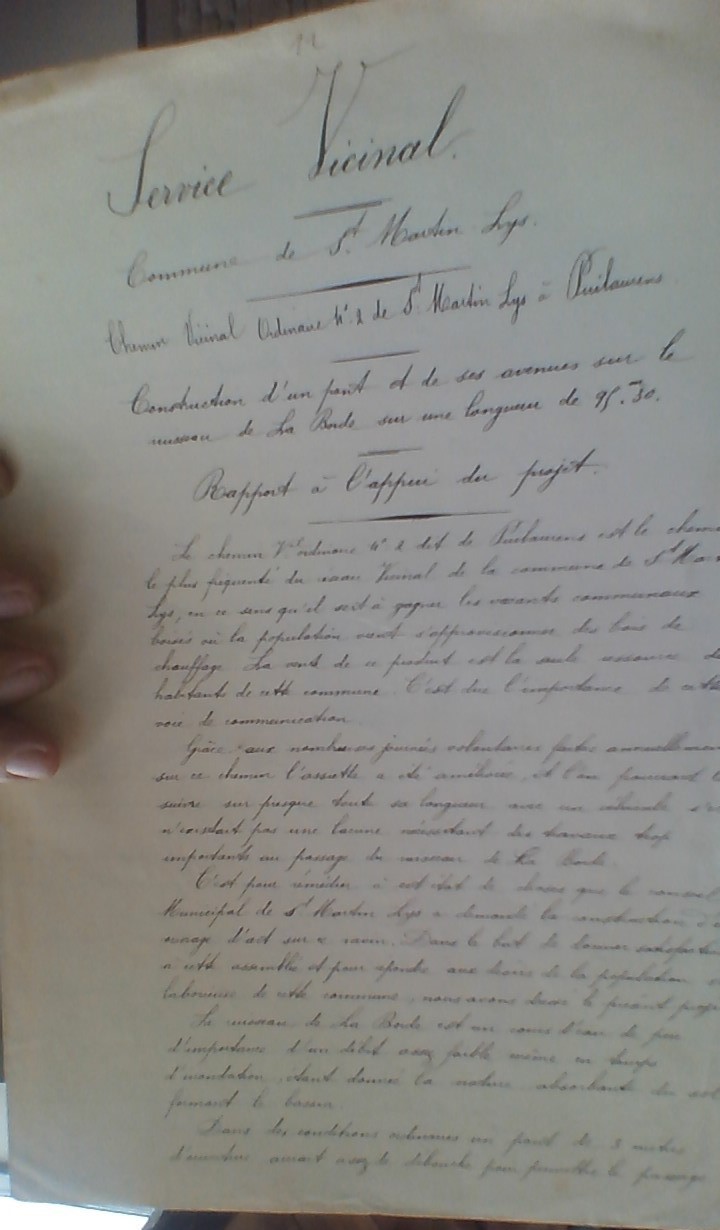 12
Service Vicinal.
Commune de St. Martin Lys.
Chemin Vicinal Ordinaire No. 2 de St Martin Lys à Puilaurens
Construction d'un pont et de ses avenues sur le
ruisseau de La Borde sur une longueur de 95.m30.
Rapport à l'appui du projet.
Le chemin Val ordinaire No 2 dit de Puilaurens est le chemin
le plus fréquenté du réseau Vicinal de la commune de St Mar
Lys, en ce sens qu'il sert à gagner les vacants communaux
boisés où la population vient s'approvisionner des bois de
chauffage. La vente de ce produit est la seule ressource de
habitants de cette commune. C'est dire l'importance de cette
voie de communication.
Grâce aux nombreuses journées volontaires faites annuellement
sur ce chemin l'assiette a été améliorée, et l'on pourrait le
suivre sur presque toute sa longueur avec un véhicule s'il
n'existait pas une lacune nécessitant des travaux trop
importants au passage du ruisseau de La Borde.
C'est pour rémédier à cet état de choses que le conseil
Municipal de St Martin Lys a demandé la construction d'un
ouvrage d'art sur ce ravin. Dans le but de donner satisfaction
à cette assemblée et pour répondre aux désirs de la population
laborieuse de cette commune, nous avons dressé le présent projet
Le ruisseau de La Borde est un cours d'eau de peu
d'importance d'un débit assez faible même en temps
d'inondation, étant donné la nature absorbante du sol
formant le bassin.
Dans des conditions ordinaires un pont de 3 mètres
d'ouverture aurait assez de débouché pour permettre le passage